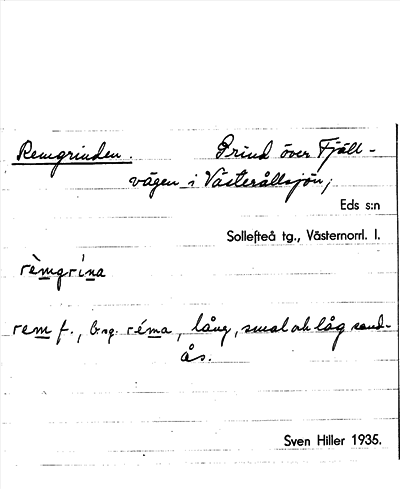 Remgrinden. Grind över Fjäll-
vägen i Västeråsjön;
Eds s:n
Sollefteå tg., Västernorrl. l.
rèmgrína
rem f., b. sg. réma, lång, smal och låg sand-
ås.
Sven Hiller 1935.